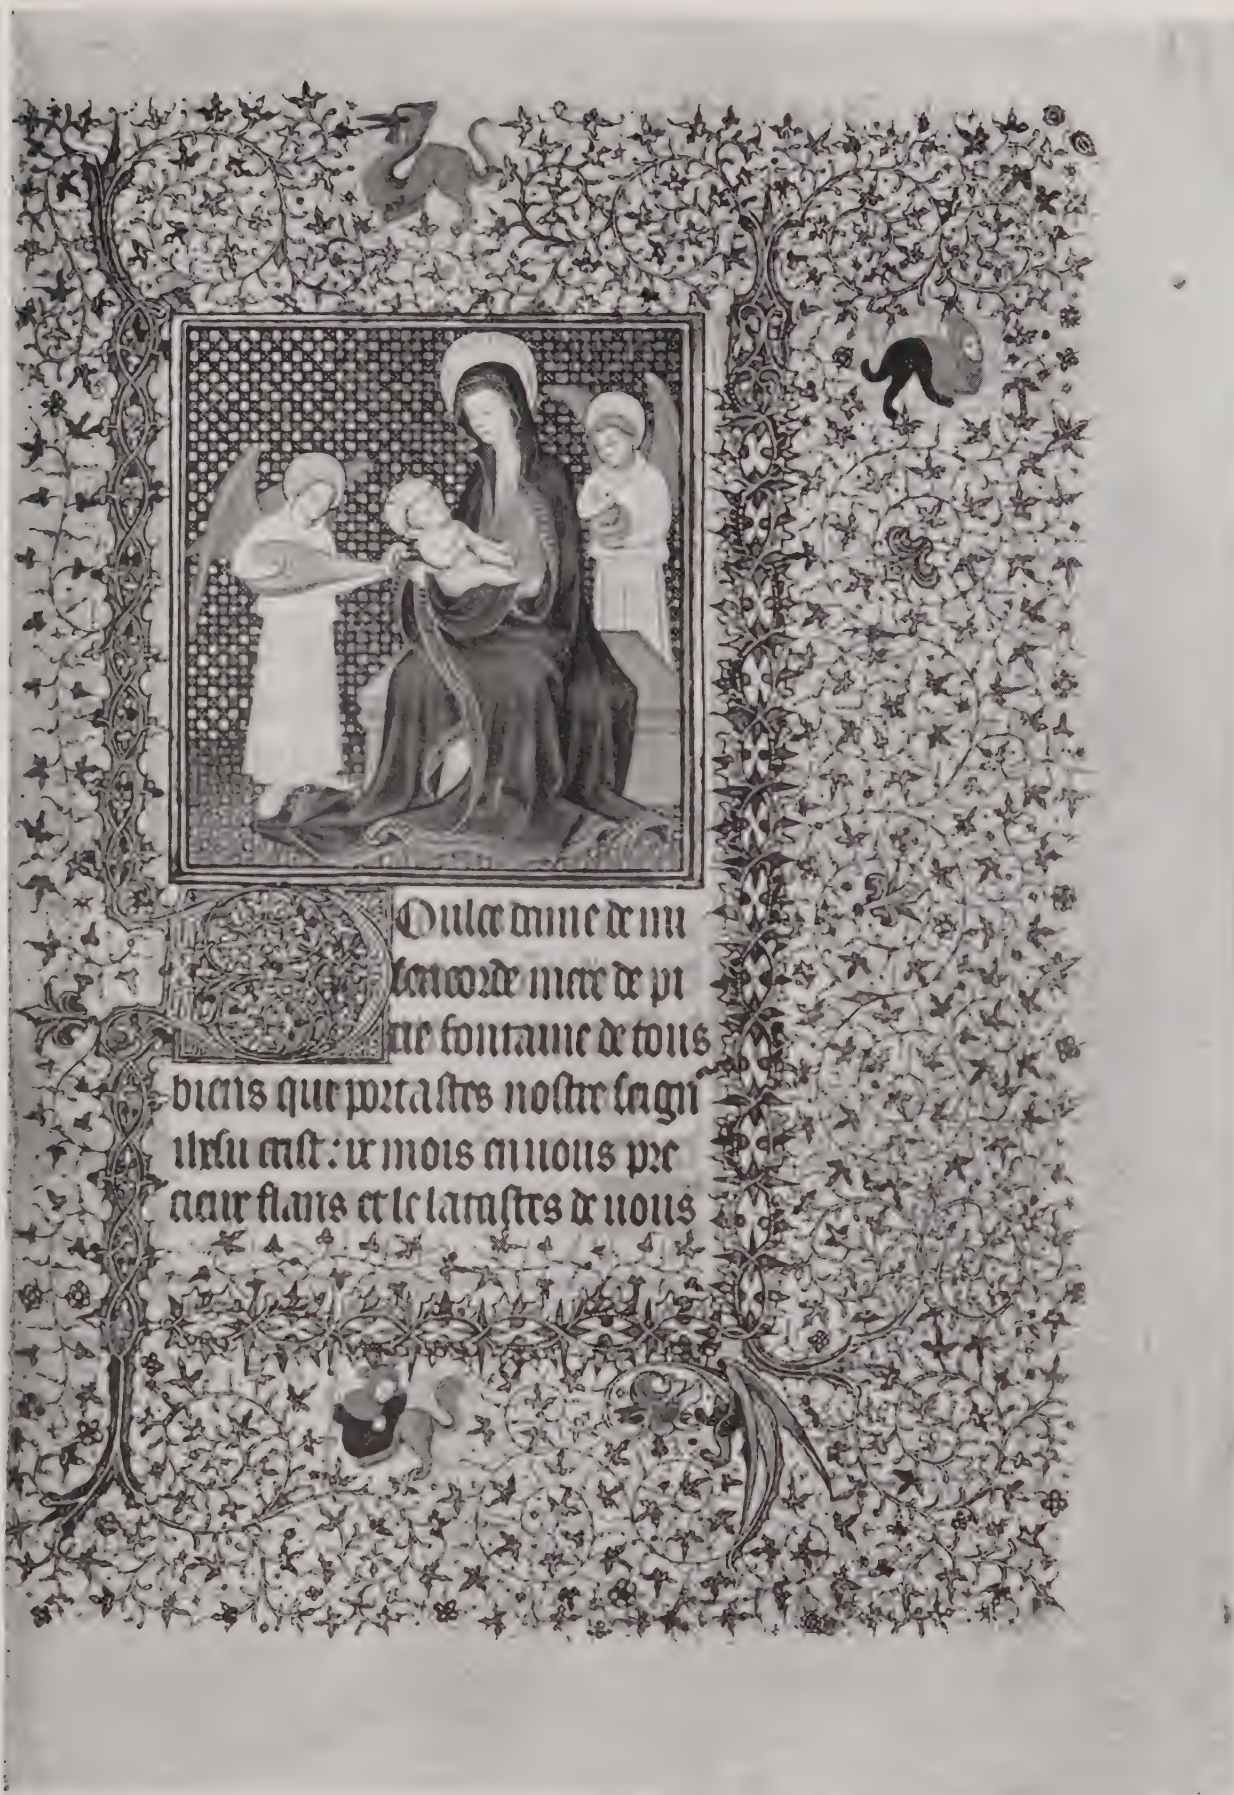 Doulce dame de mi
sericorde mere de pi
tie fontaine de tous
biens que portastes nostre seign̄
ihesu crist : ix mois en uous pre
cieux flans et le laitastes de uous